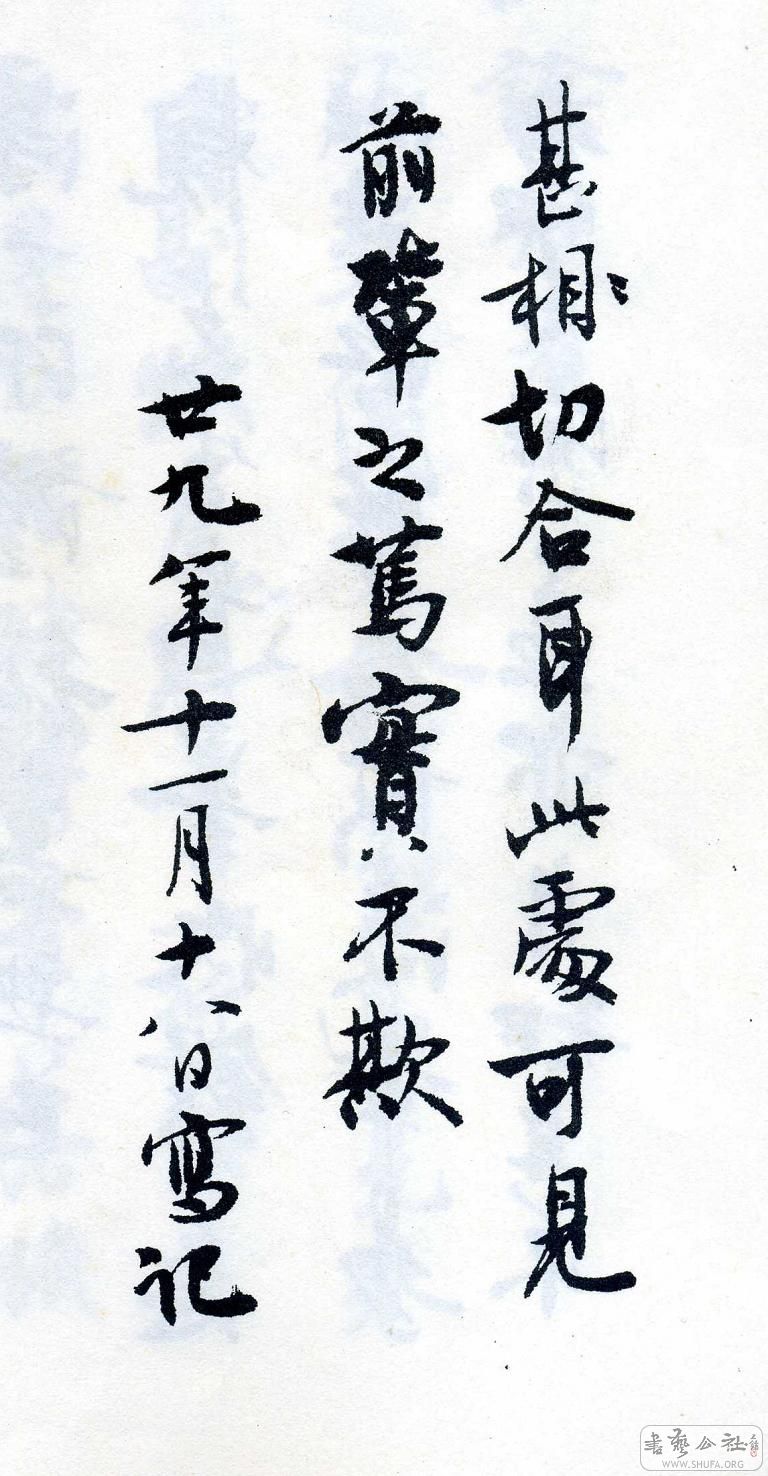 甚相切合耳此處可見
前輩之篤實不欺
廿九年十一月十八日寫記
書藝公社
WWW.SHUFA.ORG